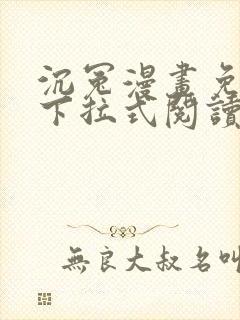 沉冤漫畫免
下拉式閱讀
無良大叔名叫